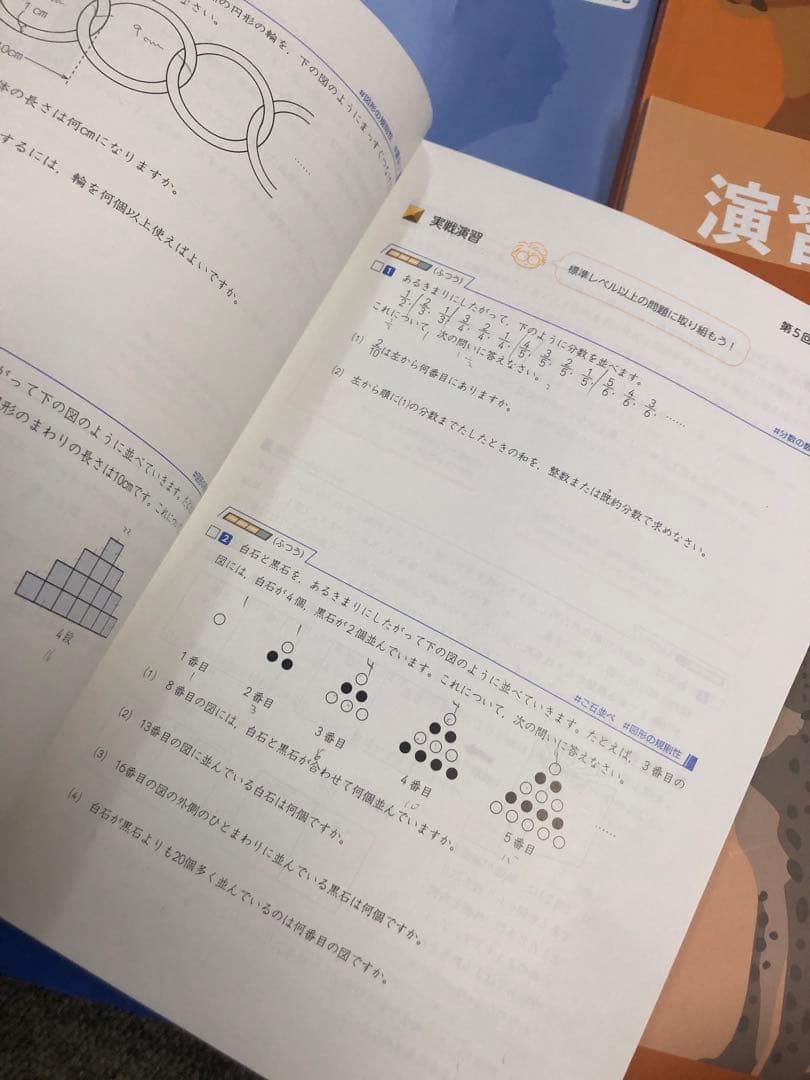 の円形の輪を、下の図のようにまっすぐつなげ
なさい。
1cm
9cm
0cm
#図形の規則性
体の長さは何cmになりますか。
するには、輪を何個以上使えばよいですか。
がって下の図のように並べていきます。
形のまわりの長さは10cmです。これにつ
4段
演習
実戦演習
標準レベル以上の問題に取り組もう！
第5回
1 (ふつう)
あるきまりにしたがって、下のように分数を並べます。
1/2, 2/3, 1/3, 3/4, 2/4, 1/4, 4/5, 3/5, 2/5, 1/5, 5/6, 4/6, 3/6, ……
これについて、次の問いに答えなさい。
#分数の数
(1) 2/10は左から何番目にありますか。
(2) 左から順に(1)の分数までたしたときの和を、整数または既約分数で求めなさい。
2 (ふつう)
#ご石並べ #図形の規則性
白石と黒石を、あるきまりにしたがって下の図のように並べていきます。たとえば、3番目の
図には、白石が4個、黒石が2個並んでいます。これについて、次の問いに答えなさい。
1番目
2番目
3番目
4番目
5番目
……
1
3
6
10
15
(1) 8番目の図には、白石と黒石が合わせて何個並んでいますか。
(2) 13番目の図に並んでいる白石は何個ですか。
(3) 16番目の図の外側のひとまわりに並んでいる黒石は何個ですか。
(4) 白石が黒石よりも20個多く並んでいるのは何番目の図ですか。